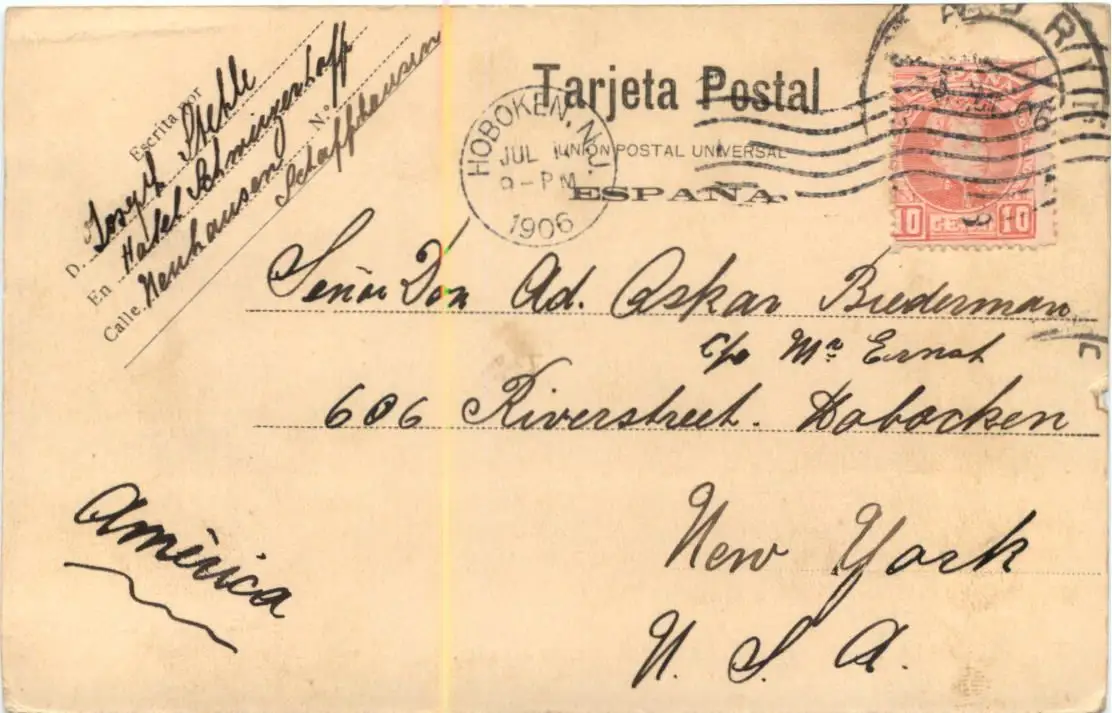 Escrita por
D. Joseph Stehle
En Hotel Schweizerhoff
Calle Neuhausen N.º
Schaffhausen
Tarjeta Postal
UNIÓN POSTAL UNIVERSAL
ESPAÑA
HOBOKEN, N.J.
JUL
9-PM
1906
10 10
Señor Don Ad. Oskar Biederman
c/o Mr Ernst
606 Riverstreet. Hobocken
América
New York
U. S. A.